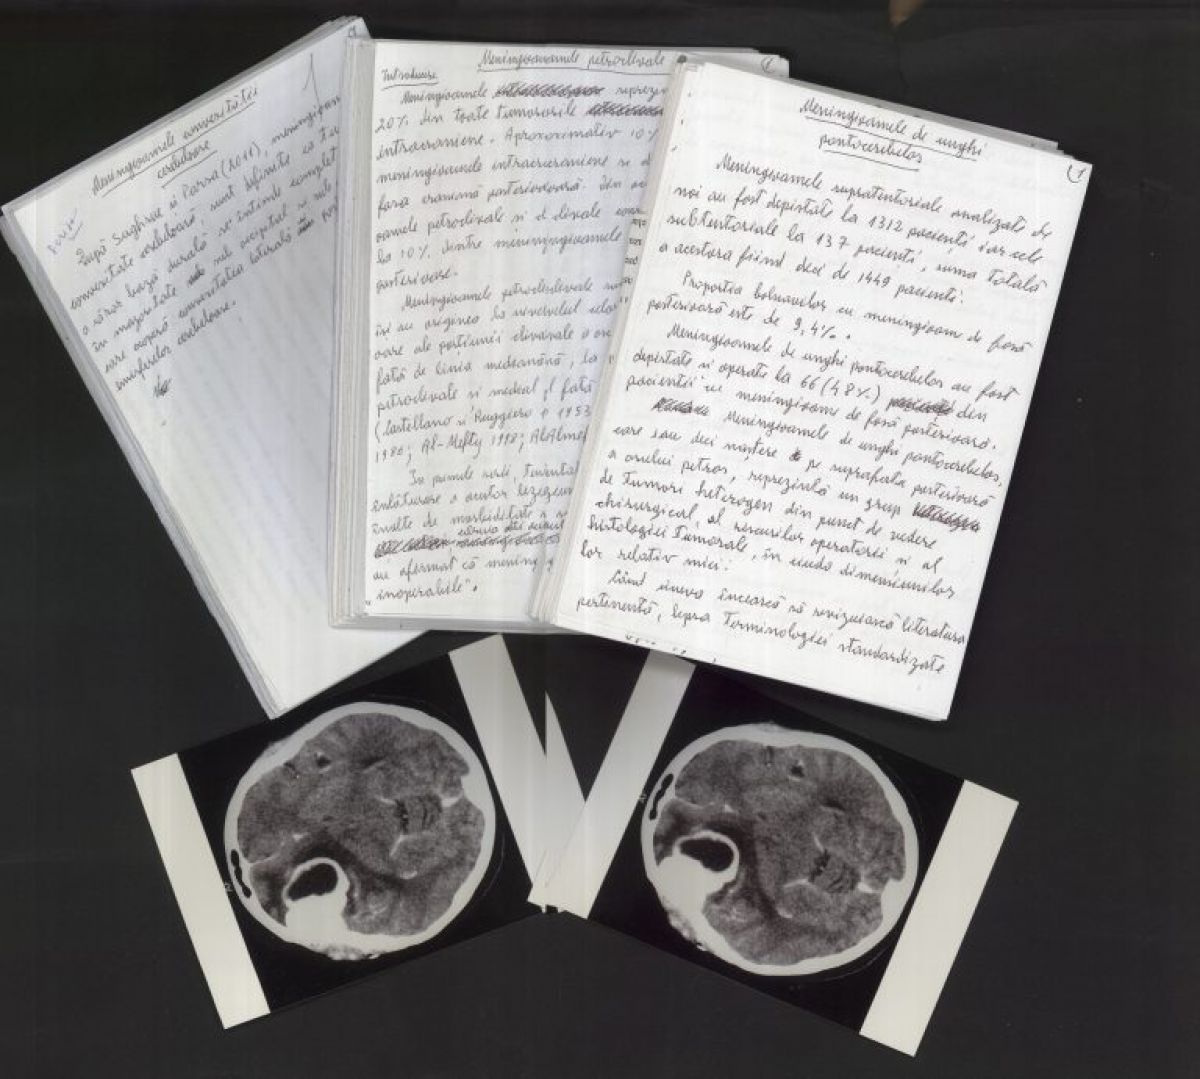 Meningioamele convexității
cerebeloase
După Sughrue și Parsa (2011), meningioam
convexitate cerebeloasă, sunt definite ca
a căror bază durală se întinde complet
în majoritate sub occipital și sub
care acoperă convexitatea laterală
emisferelor cerebeloase.
1
Meningioamele petroclivale
Introducere
Meningioamele reprezin
20% din toate tumorile
intracraniene. Aproximativ 10%
meningioamele intracraniene se d
fosa craniană posterioară. Din
oamele petroclivale și
la 10% dintre meningioamele
posterioare.
Meningioamele petroclivale
își au originea la nivelul
oare ale porțiunii
față de linia mediană, la
petroclivale și medial față
(Castellano și Ruggiero 1953
1980; Al-Mefty 1998;
În primele serii,
înlăturare a acestor leziuni
înalte de morbiditate
au afirmat că mening
"inoperabile".
1
Meningioamele de unghi
pontocerebelos
Meningioamele supratentoriale analizate de
noi au fost depistate la 1312 pacienți iar cele
subtentoriale la 137 pacienți, suma totală
a acestora fiind deci de 1449 pacienți.
Proporția bolnavilor cu meningiom de fosă
posterioară este de 9,4%.
Meningioamele de unghi pontocerebelos au fost
depistate și operate la 66 (48%) din
pacienții cu meningioame de fosă posterioară.
Meningioamele de unghi pontocerebelos,
care iau deci naștere pe suprafața posterioară
a osului pietros, reprezintă un grup
de tumori heterogen din punct de vedere
chirurgical, al riscurilor operatorii și al
histologiei tumorale, în ciuda dimensiunilor
lor relativ mici.
Când cineva încearcă să revizuiască literatura
pertinentă, lipsa terminologiei standardizate